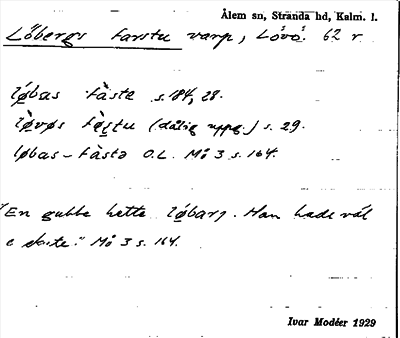 Ålem sn, Stranda hd, Kalm. l.
Löbergs Farstu varp, Lövö. 62 r
løbas fàste s. 184, 28.
løvøs fɛ̀stu (dålig uppg.) s. 29.
løbas-fàstə O.L. Mö 3 s. 164.
"En gubbe hette løbarj. Han hade väl
e skate." Mö 3 s. 164.
Ivar Modéer 1929